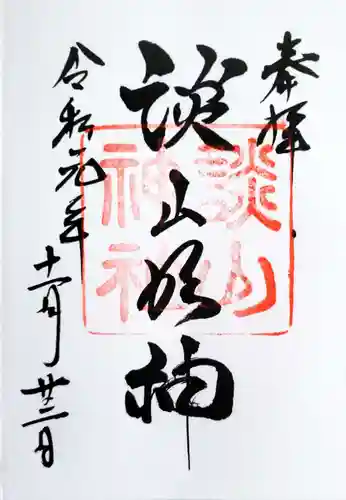 奉拝
談山明神
談山
神社
令和元年
十一月廿二日